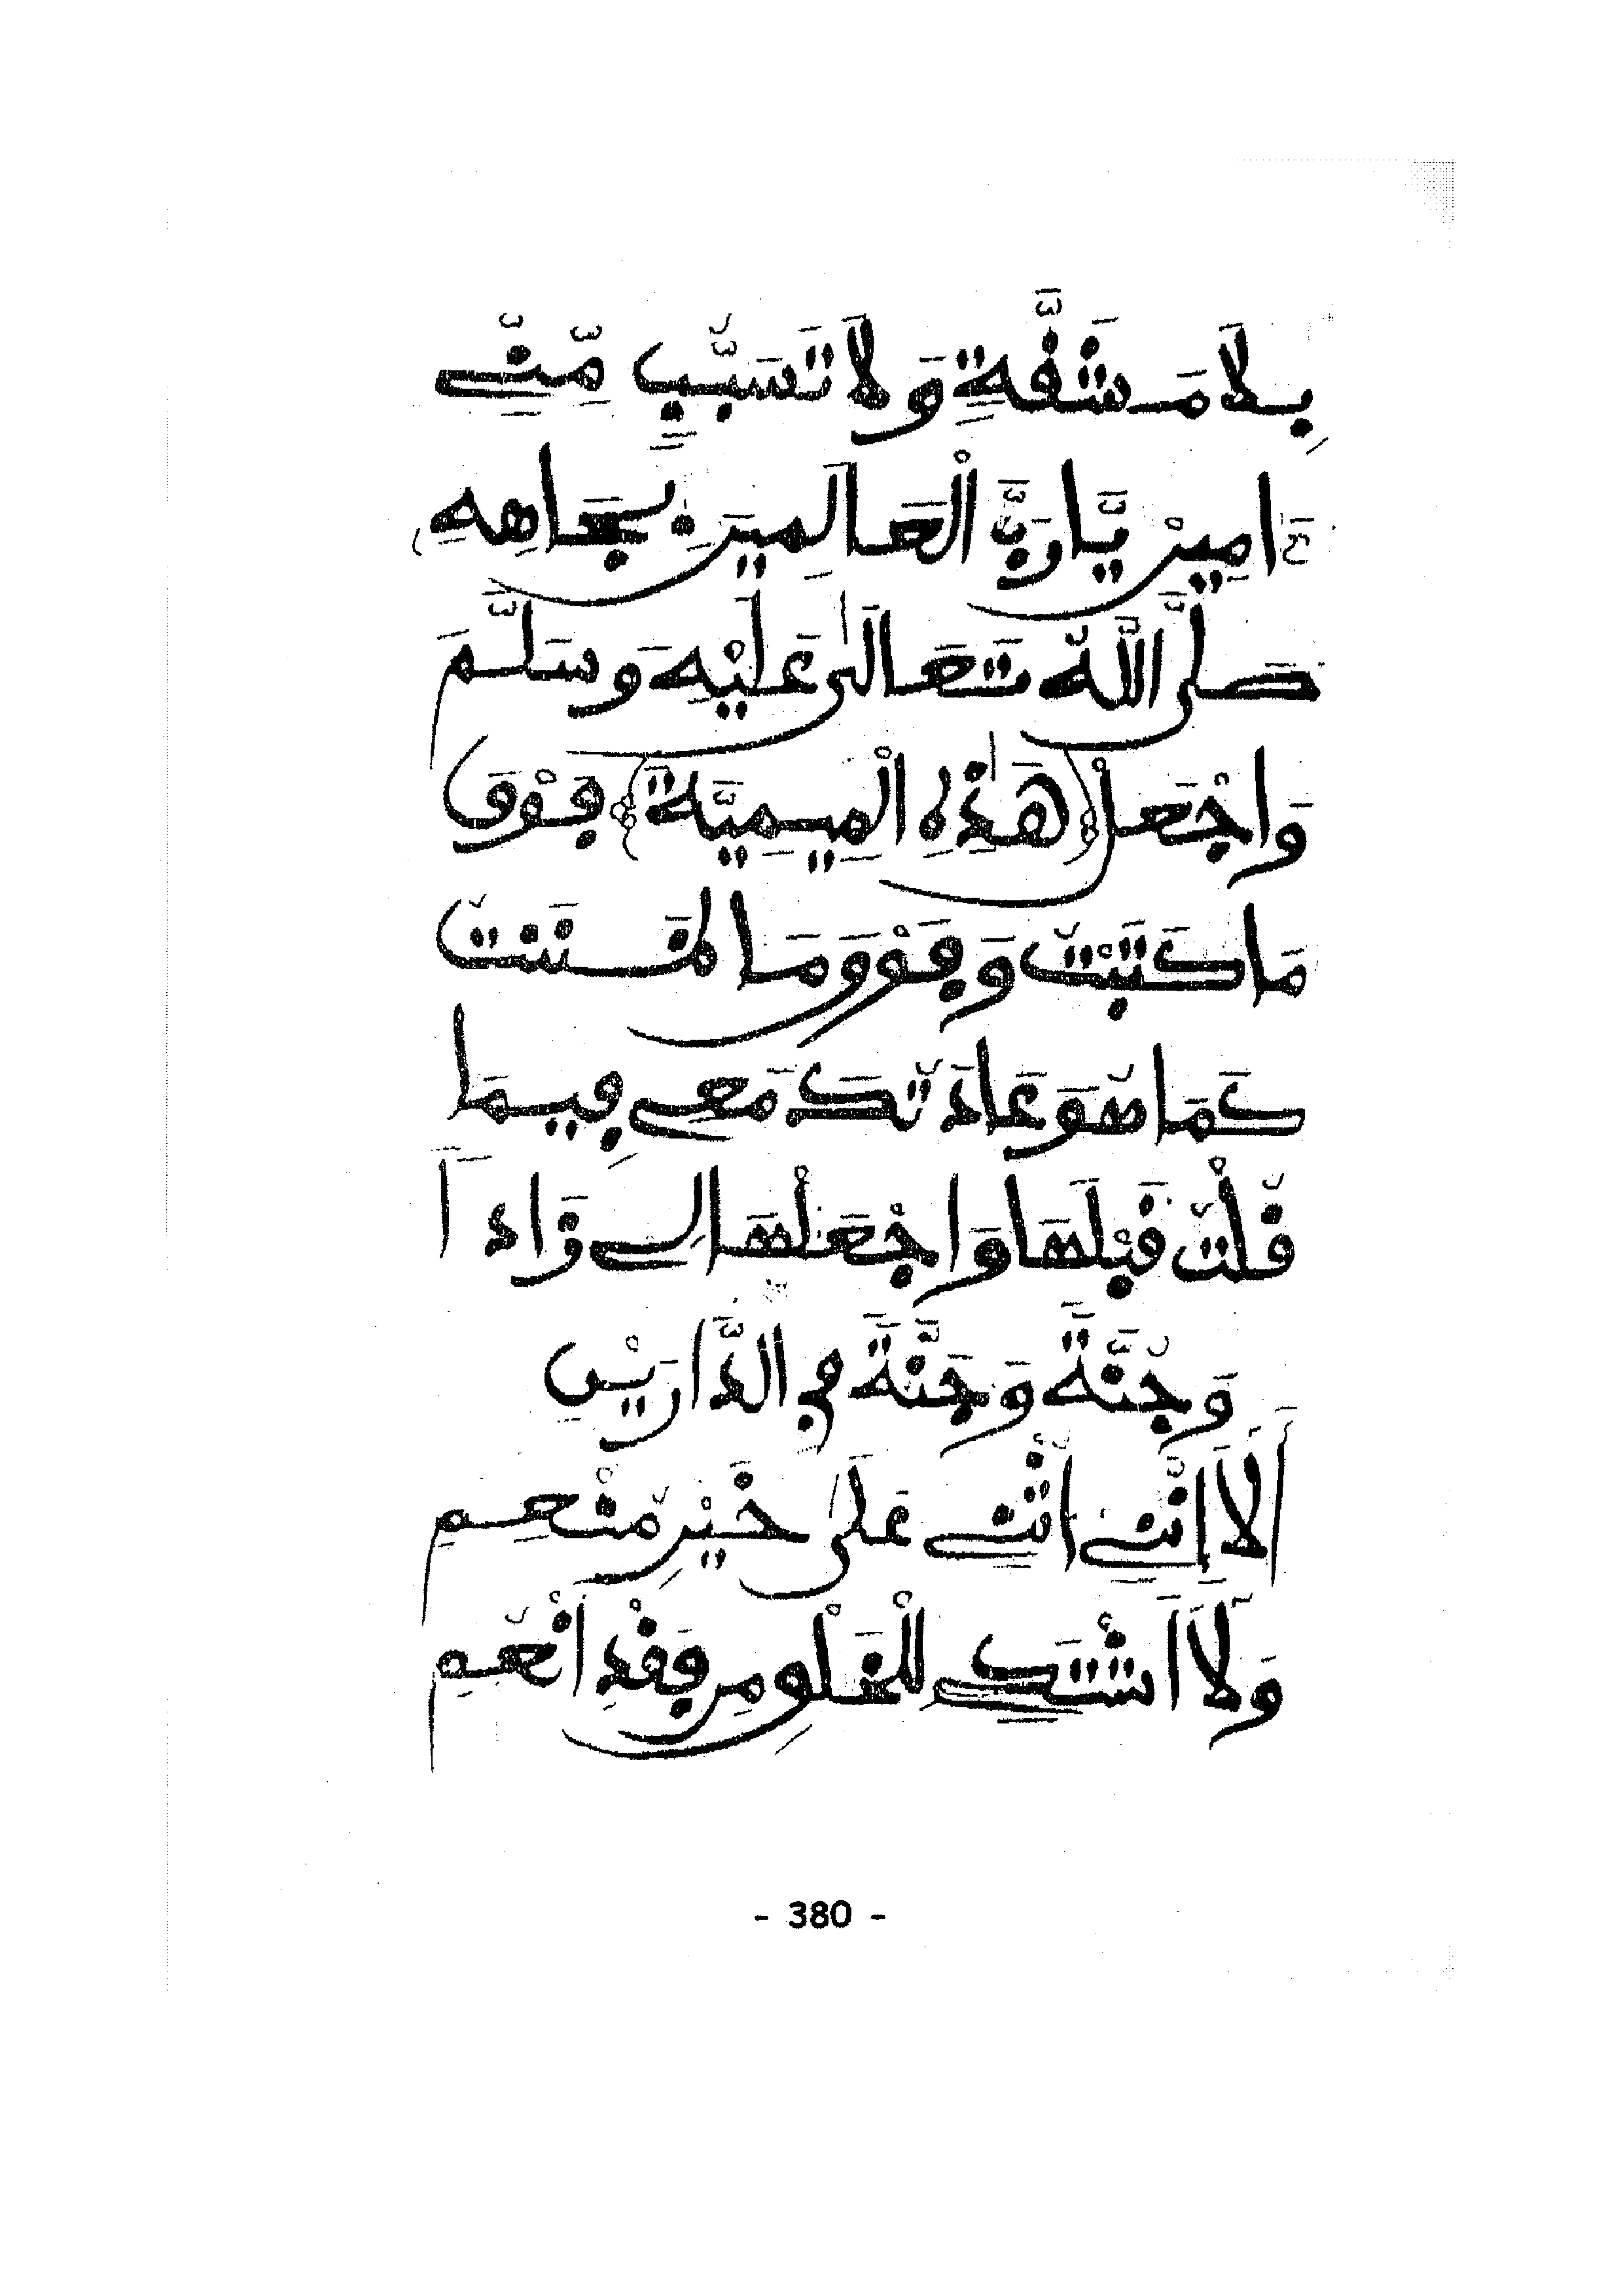 بِلَا مَشَقَّةٍ وَلَا تَسَبُّبٍ مِّنِّے
ءَامِينْ يَّا رَبَّ الْعَالَمِينَ بِجَاهِهِ
صَلَّى اللَّهُ تَعَالَىٰ عَلَيْهِ وَسَلَّمَ
وَاجْعَلْ هَٰذِهِ الْمِيمِيَّةَ فَوْقَ
مَا كَتَبْتُ وَفَوْقَ مَا ظَنَنتُ
كَمَا هُوَ عَادَتُكَ مَعِے فِيمَا
قُلْتُ قَبْلَهَا وَاجْعَلْهَا لِے زَادًا
وَجُنَّةً وَجَنَّةً فِي الدَّارَيْنِ
أَلَا إِنَّنِے أُثْنِے عَلَىٰ خَيْرِ مُنْعِمِ
وَلَا أَشْتَكِے لِلْخَلْقِ مَن قَدْ أَنْعَمَ
- 380 -